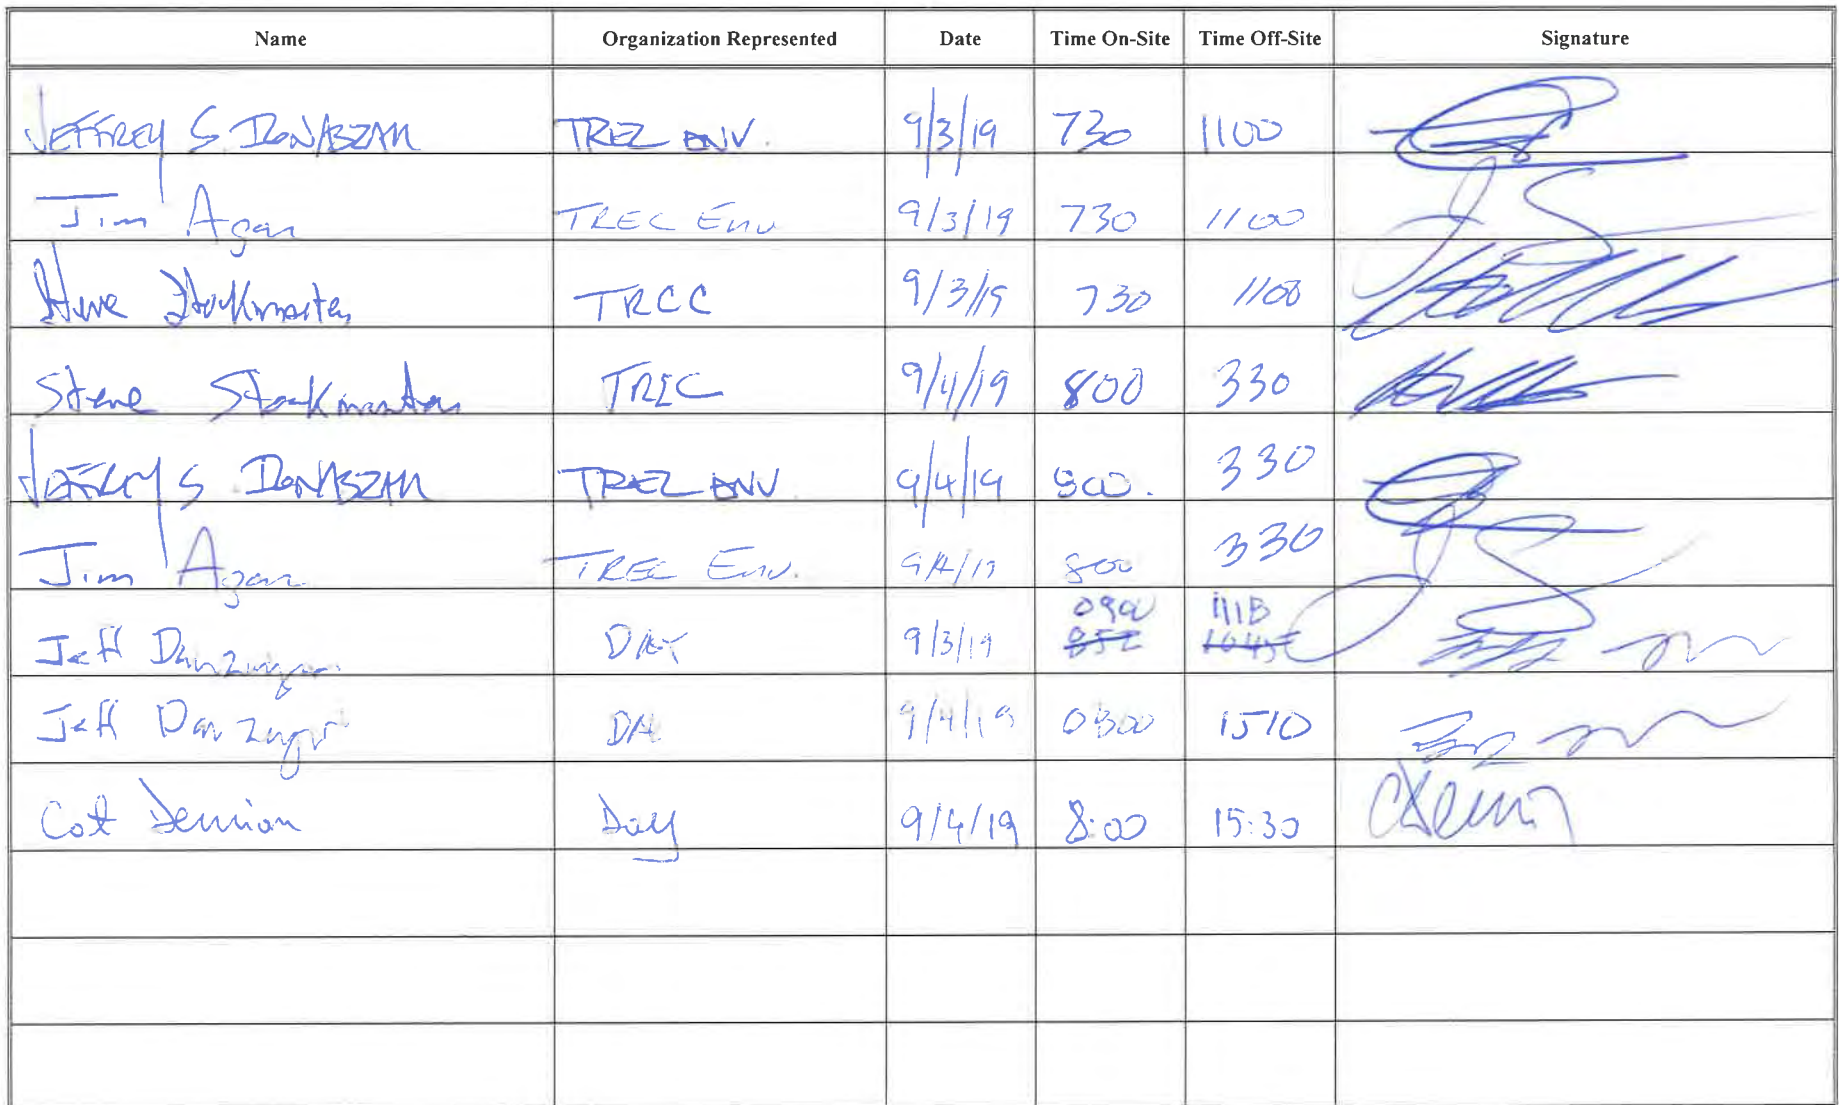 Name Organization Represented Date Time On-Site Time Off-Site Signature
JEFFREY S. TREC ENV. 9/3/19 730 1100
Jim Agar TREC Env 9/3/19 730 1100
Steve Stockmaster TREC 9/3/19 730 1100
Steve Stockmaster TREC 9/4/19 800 330
JEFFREY S. TREC ENV 9/4/19 800. 330
Jim Agar TREC Env. 9/4/19 800 330
Jeff Danzinger DAY 9/3/19
Jeff Danzinger DAY 9/4/19 0800 1510
Day 9/4/19 8:00 15:30